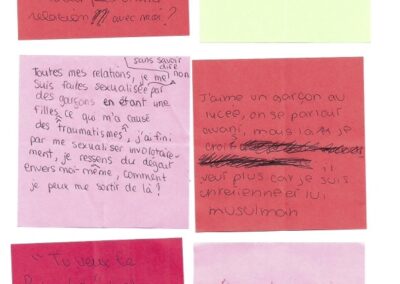 relation avec moi ?
sans savoir
dire
non
Toutes mes relations, je me
suis faites sexualisée par
des garçons en étant une
filles, ce qui m'a causé
des traumatismes, j'ai fini
par me sexualiser involontaire-
ment, je ressens du dégout
envers moi même, comment
je peux me sortir de là ?
J'aime un garçon au
lycée, on se parlait
avant, mais la je
crois
veut plus car je suis
chretienne et lui
musulman
"Tu veux le